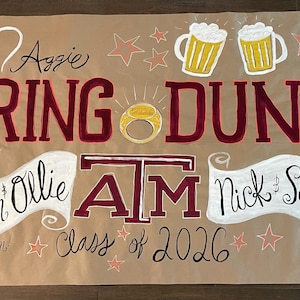 Aggie
RING DUN
& Ollie ATM Nick & S
Class of 2026